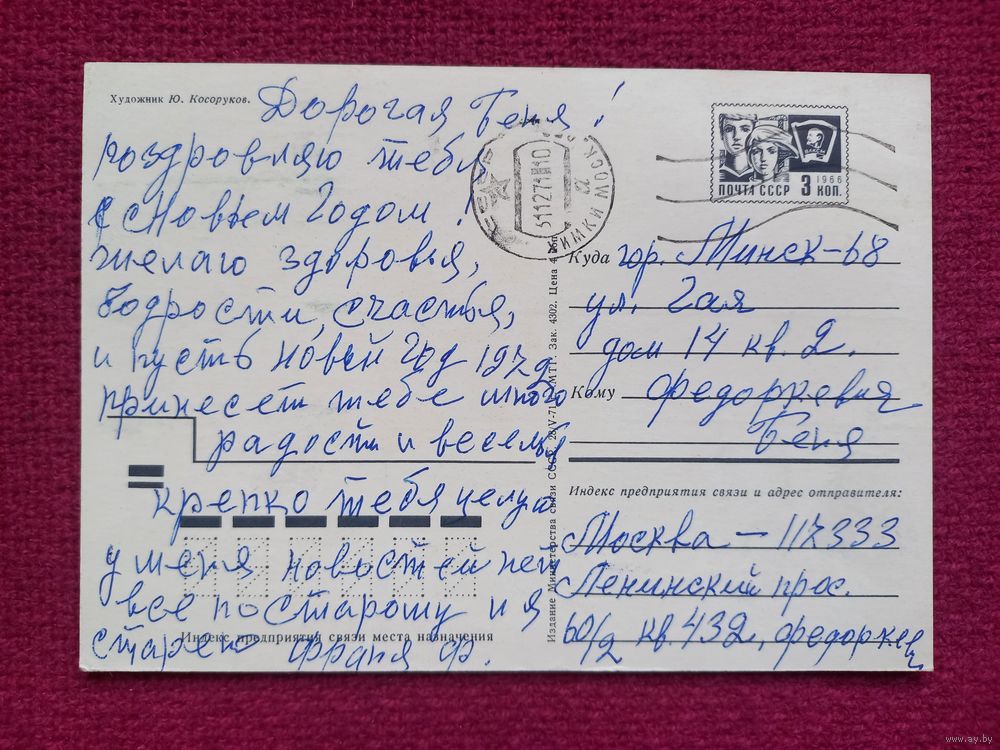 Художник Ю. Косоруков.
Дорогая Геня!
поздровляю тебя
с Новым Годом!
желаю здоровья,
бодрости, счастья,
и пусть новый год 1972
принесет тебе много
радости и веселья
крепко тебя целую
у меня новостей нет
все по старому и я
старею Франя Ф.
Индекс предприятия связи места назначения
MOSCOW
311271
10
22
ПОЧТА СССР 3 КОП.
1966
ВЛКСМ
Куда гор. Минск-68
ул. Гая
дом 14 кв. 2.
Кому Федоркевич
Геня
Индекс предприятия связи и адрес отправителя:
Москва - 117333
Ленинский прос.
60/2 кв. 432, Федоркевич
Издание Министерства связи СССР. 28/V-71 МТГ. Зак. 4302. Цена 4 коп.
www.ay.by